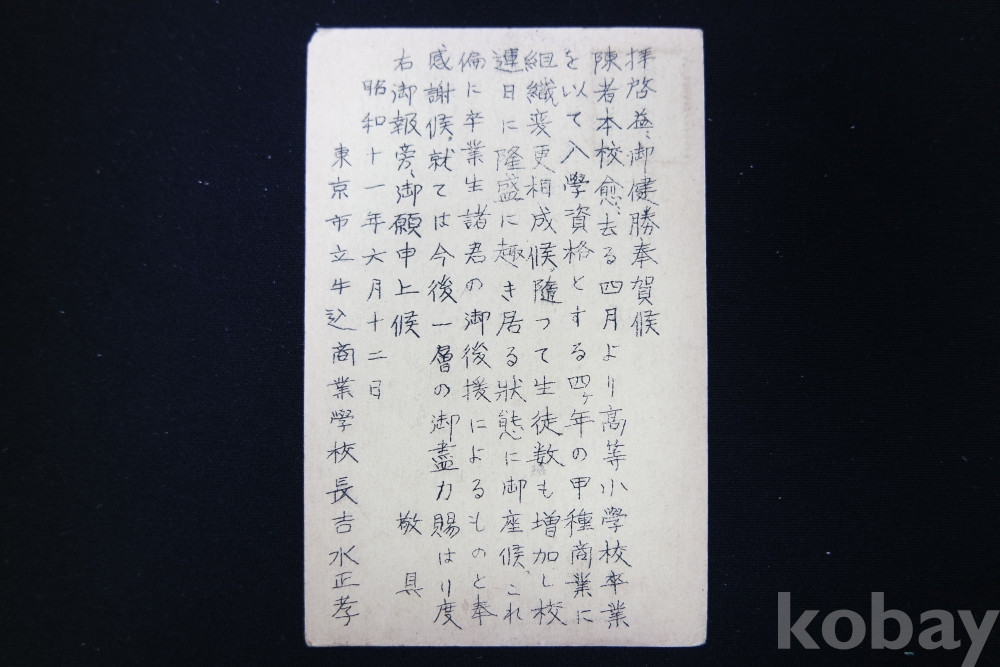 拝啓益〻御健勝奉賀候
陳者本校愈〻去る四月より高等小學校卒業
を以て入學資格とする四ヶ年の甲種商業に
組織変更相成候、隨つて生徒数も増加し校
運日に隆盛に趣き居る狀態に御座候、これ
偏に卒業生諸君の御後援によるものと奉
感謝候、就ては今後一層の御盡力賜はり度
右御報旁〻御願申上候　敬具
昭和十一年六月十二日
東京市立牛込商業學校長吉水正孝
kobay